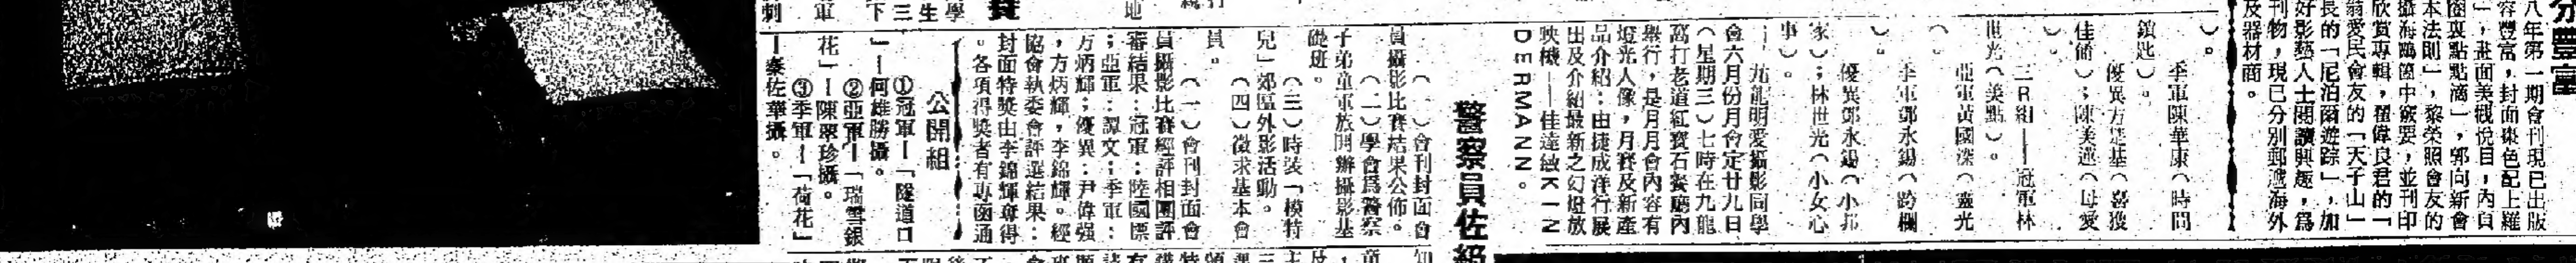 分豐富
八年第一期會刊現已出版
容豐富,封面棗色配上羅
」,畫面美觀悅目;內自
園裏點點滴」,郭向新會
本法則」,黎榮照會友的
攝海鷗箇中竅要,並刊印
欣賞專輯,翟偉良君的「
翁愛民會友的「天子山」
長的「尼泊爾遊踪」,加
好影藝人士閱讀興趣,爲
刊物,現已分別郵遞海外
及器材商。
季軍陳華康(時間
鎖匙)。
優異方是基(喜獲
佳餚);陳美蓮(母愛
)。
三R組——冠軍林
世光(美點)。
亞軍黃國深(靈光
)。
季軍鄧永錫(跨欄
)。
優異鄧永錫(小非
家);林世光(小女心
事)。
九龍明愛攝影同學
會六月份月會定廿九日
(星期三)七時在九龍
窩打老道紅寶石餐廳內
舉行,是月月會內容有
燈光人像,月賽及新產
品介紹:由捷成洋行展
出及介紹最新之幻燈放
映機——佳達敏KIN
DERMANN。
警察員佐級
(一)會刊封面會
員攝影比賽結果公佈。
(二)學會爲警察
子弟童軍放開辦攝影基
礎班。
(三)時裝「模特
兒」郊區外影活動。
(四)徵求基本會
員。
(一)會刊封面會
員攝影比賽經評相團評
審結果:冠軍:陸國標
;亞軍:譚文;季軍:
方炳輝;優異:尹偉强
,方炳輝,李錦輝。經
協會執委會評選結果:
封面特獎由李錦輝奪得
。各項得獎者有專函通
公開組
①冠軍—「隧道口
」—何雄勝攝。
②亞軍—「瑞雪銀
花」—陳翠珍攝。
③季軍—「荷花」
—秦佐華攝。